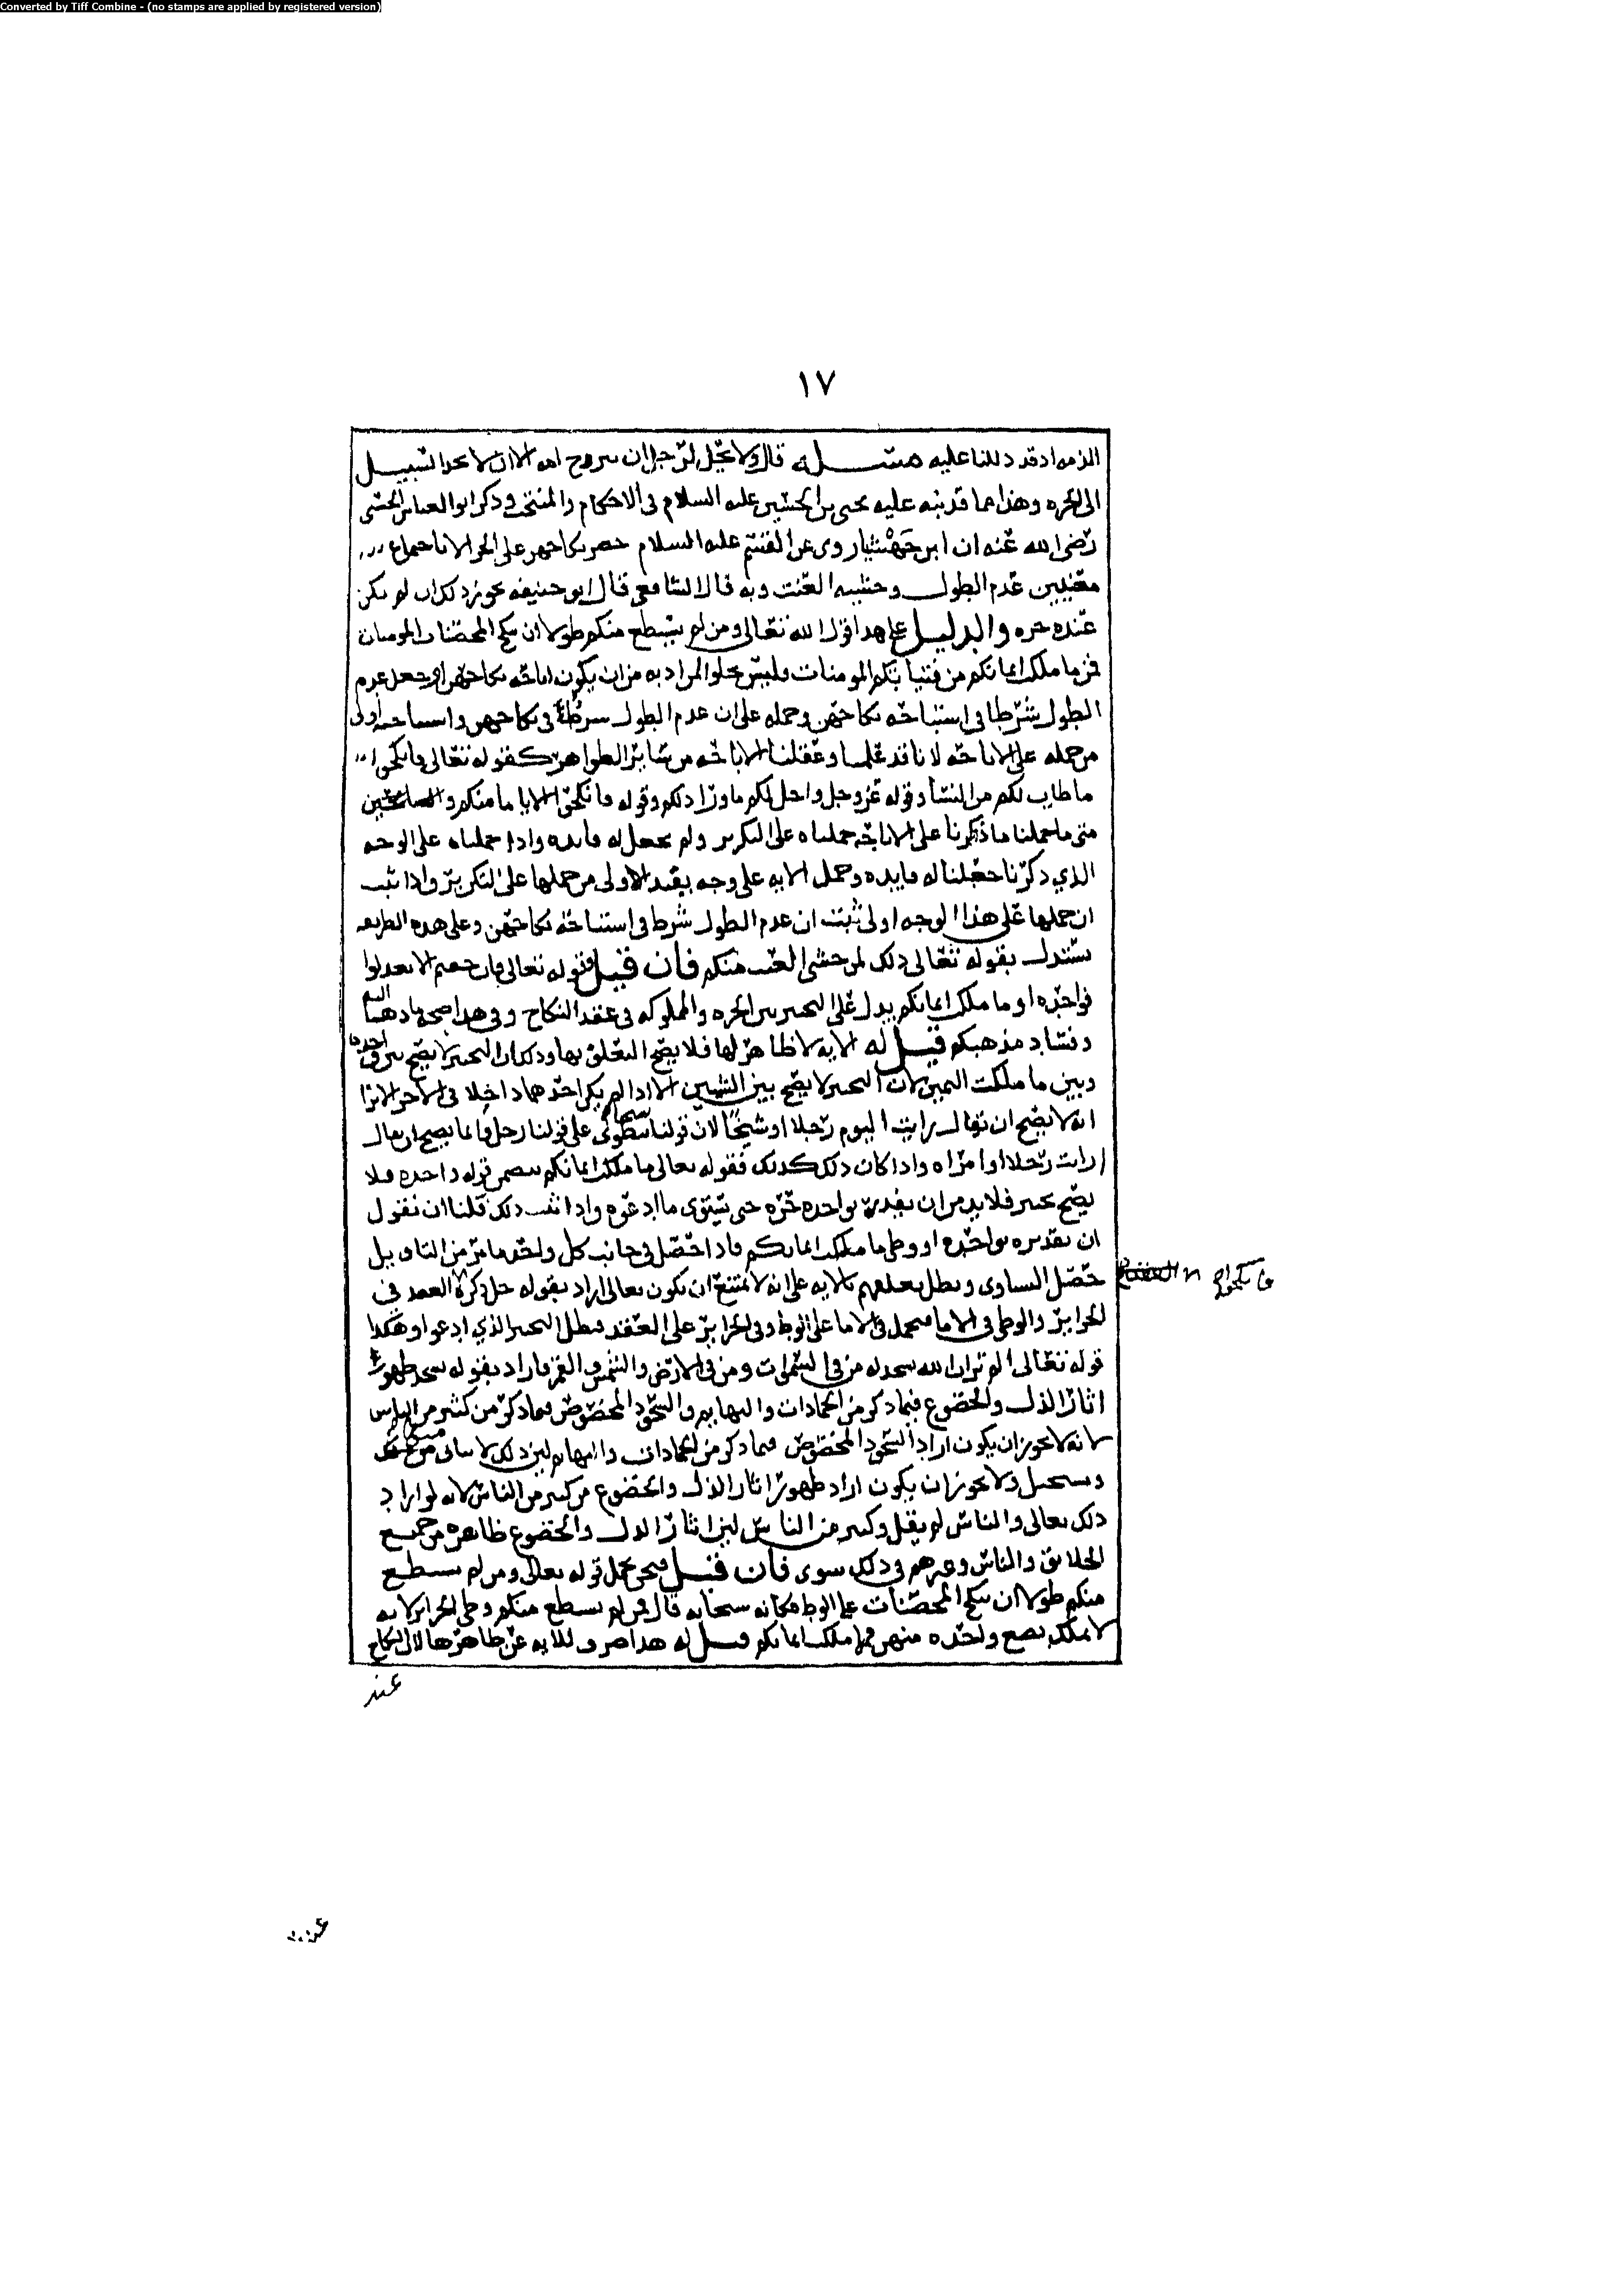 Converted by Tiff Combine - (no stamps are applied by registered version)
١٧
الزمه اذ قد دللنا عليه مسئله قال ولا يحل لرجل ان يتزوج امه الا ان لا يجد السبيل
الى الحره وهذا مما قد نبه عليه يحيى بن الحسين عليه السلام في الاحكام والمنتخب وذكر ابو العباس الحسني
رضي الله عنه ان ابن جهشيار روى عن القسم عليه السلام حصر نكاحهن على الحر الا باجماع
معنيين عدم الطول وخشيه العنت وبه قال الشافعي قال ابو حنيفه يجوز ذلك ان لم يكن
عنده حره والدليل على هذا قول الله تعالى ومن لم يستطع منكم طولا ان ينكح المحصنات المومنات
فمن ما ملكت ايمانكم من فتياتكم المومنات وليس يخلوا المراد به من ان يكون اباحه نكاحهن او جعل عدم
الطول شرطا في استباحه نكاحهن وحمله على ان عدم الطول شرط في نكاحهن واستباحته اولى
من حمله على الاباحه لانا قد علمنا وعقلنا الاباحه من سائر الظواهر كقوله تعالى فانكحوا
ما طاب لكم من النسا وقوله عز وجل واحل لكم ما ورا ذلكم وقوله وانكحوا الايامى منكم والصالحين
متى ما حملنا ما ذكرنا على الاباحه حملناه على التكرير ولم يجعل له فايده واذا حملناه على الوجه
الذي ذكرنا جعلنا له فايده وحمل الايه على وجه يفيد الاولى من حملها على التكرير واذا ثبت
ان حملها على هذا الوجه اولى ثبت ان عدم الطول شرط في استباحه نكاحهن وعلى هذه الطريقه
يستدل بقوله تعالى ذلك لمن خشي العنت منكم فان قيل فقوله تعالى فان خفتم الا تعدلوا
فواحده او ما ملكت ايمانكم يدل على التخيير بين الحره والمملوكه في عقد النكاح وفي هذا صحه ما ذهبنا اليه
وفساد مذهبكم قيل له الايه لا ظاهر لها فلا يصح التعلق بها وذلك ان التخيير لا يصح بين قوله واحده
وبين ما ملكت اليمين لان التخيير لا يصح بين الشيين الا اذا لم يكن احدهما داخلا في الاخر الا ترا
انه لا يصح ان تقال رايت اليوم رجلا او شيخا لان قولنا شيخا منطوي على قولنا رجل وانما يصح ان يقال
رايت رجلا او امراه واذا كان ذلك كذلك فقوله تعالى ما ملكت ايمانكم يتضمن قوله واحده فلا
يصح تخيير فلا بد من ان نقدره بواحده حره حتى يستوي ما ادعوه واذا ثبت ذلك قلنا ان نقول
ان تقديره بواحده او وطى ما ملكت ايمانكم فاذا حصل في جانب كل واحد ما مر من التاويل
حصل التساوي وبطل تعلقهم بالايه على انه لا يمتنع ان يكون تعالى اراد بقوله جل ذكره العقد في
الحراير والوطى في الاما فيحمل في الاما على الوطى وفي الحراير على العقد فبطل التخيير الذي ادعوا وهكذا
قوله تعالى الم تر ان الله يسجد له من في السموات ومن في الارض والشمس والقمر فاراد بقوله يسجد ظهور
اثار الذل والخضوع فيما ذكر من الجمادات والبهايم والسجود المخصوص فيما ذكر من كثير من الناس
لانه لا يجوز ان يكون اراد السجود المخصوص فيما ذكر من الجمادات والبهايم لين ذلك لا يتاتى منهم
ويستحيل ولا يجوز ان يكون اراد ظهور اثار الذل والخضوع من كثير من الناس لانه لو اراد
ذلك تعالى والناس لم يقل وكثير من الناس لين اثار الذل والخضوع ظاهره من جميع
الخلايق والناس وغيرهم في ذلك سوى فان قيل فنحن نحمل قوله تعالى ومن لم يستطع
منكم طولا ان ينكح المحصنات على الوطى فكانه سبحانه قال من لم يستطع منكم وطى الحراير لانه
لا يملك بضع واحده منهن فمما ملكت ايمانكم قيل له هذا صرف للايه عن ظاهرها لان النكاح
عند